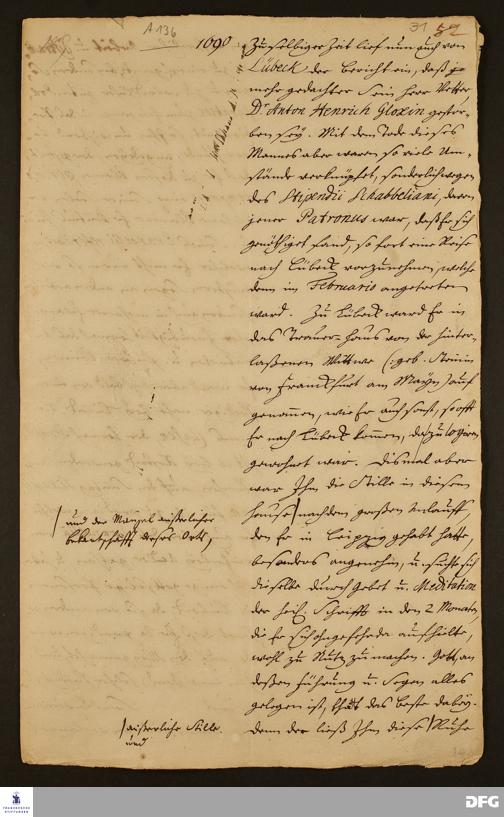 A 136
31
52
1690
Zu selbiger Zeit lief nun auch von
Lübeck der Bericht ein, daß
mehr gedachter Sein Herr Vetter,
Dr Anton Henrich Gloxin gestor-
ben sey. Mit dem Tode dieses
Mannes aber waren so viele Um-
stände verknüpfet, sonderlich wegen
des Stipendii Schabbeliani, deren
jener Patronus war, daß Er sich
genöthiget fand, so fort eine Reise
nach Lübeck vorzunehmen, welche
denn im Februario angetreten
ward. Zu Lübeck ward Er in
das Trauer-Haus von der hinter-
laßenen Wittwe (: geb.
von Franckfurt am Mayn) auf
genommen, wie Er auch sonst, so offt
Er nach Lübeck kommen, dazu logiren
gewohnet war. Dismal aber
war Ihm die Stille in diesem
Hause / nach dem großen Anlauff,
den Er in Leipzig gehabt hatte,
besonders angenehm, u. suchte sich
dieselbe durch Gebet u. Meditation
der heil. Schrifft in den 2 Monaten,
die Er sich ohngefehr da aufhielte,
wohl zu Nutz zu machen. Gott, an
deßen Führung u. Segen alles
gelegen ist, that das beste dabey.
Denn der ließ Ihm diese / Ruhe
/ und der Mangel äußerlicher
Bekantschafft dieses Orts,
/ äußerliche Stille
und
FRANCKESCHE STIFTUNGEN
DFG